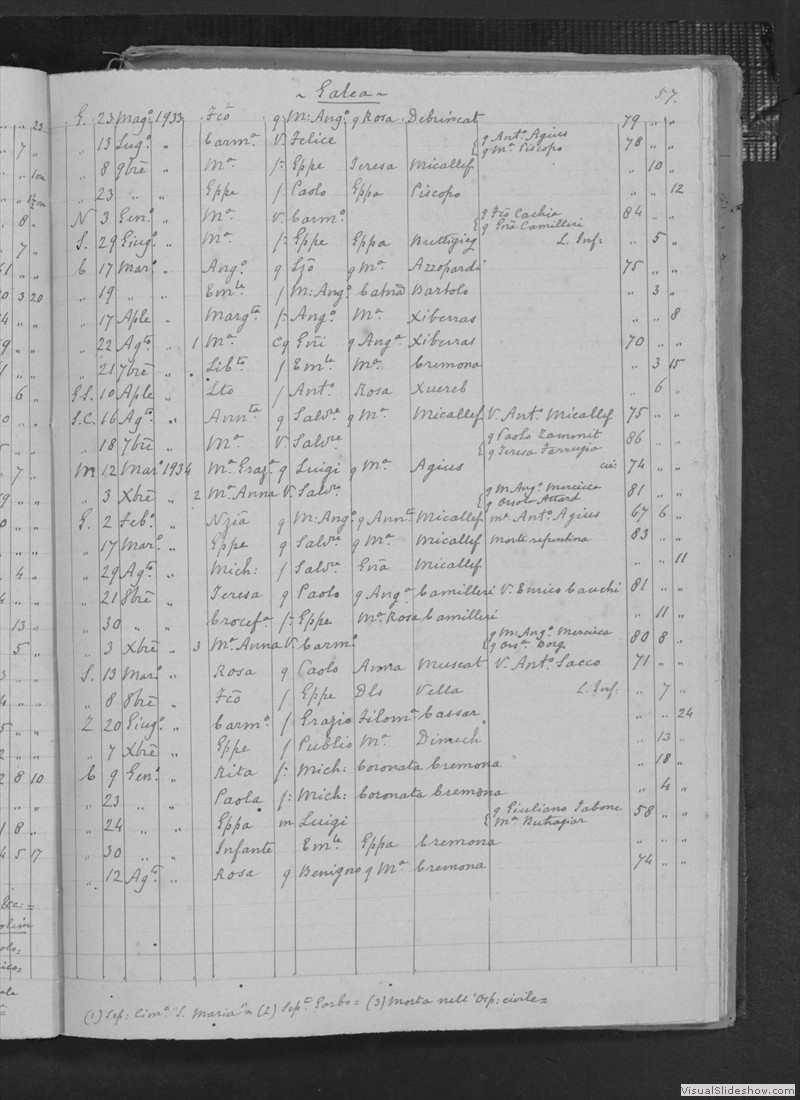 ~ Galea ~ 57.
G. 23 Magº 1933 Fcõ q M: Angº q Rosa Debrincat 79 " "
" 13 Lugº " Carmª V. Felice { q Antº Agius q Mª Piscopo 78 " "
" 8 9bre " Mª f: Gppe Teresa Micallef " 10 "
" 23 " " Gppe f Paolo Gppa Piscopo " " 12
N 3 Genº " Mª v. Carmº { q Fcõ Cachia q Gña Camilleri 84 " "
S. 29 Giugº " Mª f: Gppe Gppa Buttigieg L. Inf: " 5 "
C 17 Marº " Angº q Ljõ q Mª Azzopardi 75 " "
" 19 " " Emle f M: Angº Catna Bartolo " 3 "
" 17 Aple " Margta f: Angº Mª Xiberras " " 8
" 22 Agto " 1 Mª cq Gñi q Angª Xiberras 70 " "
" 21 7bre " Libto f Emle Mª Cremona " 3 15
G.S. 10 Aple " Lto f Antº Rosa Xuereb " 6 "
S.C. 16 Agto " Annta q Salvre q Mª Micallef V. Antº Micallef 75 " "
" 18 7bre " Mª V Salvre { q Paolo Zammit q Teresa Farrugia 86 " "
M 12 Marº 1934 Mª Grazª q Luigi q Mª Agius 74 " "
" 3 Xbre " 2 Mª Anna V. Salvre { q M: Angº Mercieca q Orsola Attard 81 " "
G. 2 Febº " Nzia q M: Angº q Annta Micallef mª Antº Agius 67 6 "
" 17 Marº " Gppe q Salvre q Mª Micallef morte repentina 83 " "
" 29 Agto " Mich: f Salvre Gña Micallef " " 11
" 21 8bre " Teresa q Paolo q Angª Camilleri V. Enrico Cauchi 81 " "
" 30 " " Crocefª f: Gppe Mª Rosa Camilleri " 11 "
" 3 Xbre " 3 Mª Anna V. Carmº { q M: Angº Mercieca q Orsª Borg 80 8 "
S. 13 Marº " Rosa q Paolo Anna Muscat V. Antº Sacco 71 " "
" 8 8bre " Fcõ f Gppe Dls Vella L. Inf: " 7 "
Z 20 Giugº " Carmº f Grazio Filomª Cassar " " 24
" 7 Xbre " Gppe f Publio Mª Dimech " 13 "
C 9 Genº " Rita f: Mich: Coronata Cremona " 18 "
" 23 " " Paola f: Mich: Coronata Cremona " 4 "
" 24 " " Gppa m Luigi { q Giuliano Tabone Mª Buttagiar 58 " "
" 30 " " Infante Emle Gppa Cremona " " "
" 12 Agto " Rosa q Benigno q Mª Cremona 74 " "
(1) Sep: Cimº "S. Maria" = (2) Sepª Garbo = (3) Morta nell'Osp: civile =
VisualSlideshow.com